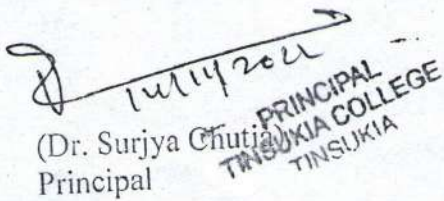 14/11/2022
PRINCIPAL
TINSUKIA COLLEGE
TINSUKIA
(Dr. Surjya Chutia)
Principal